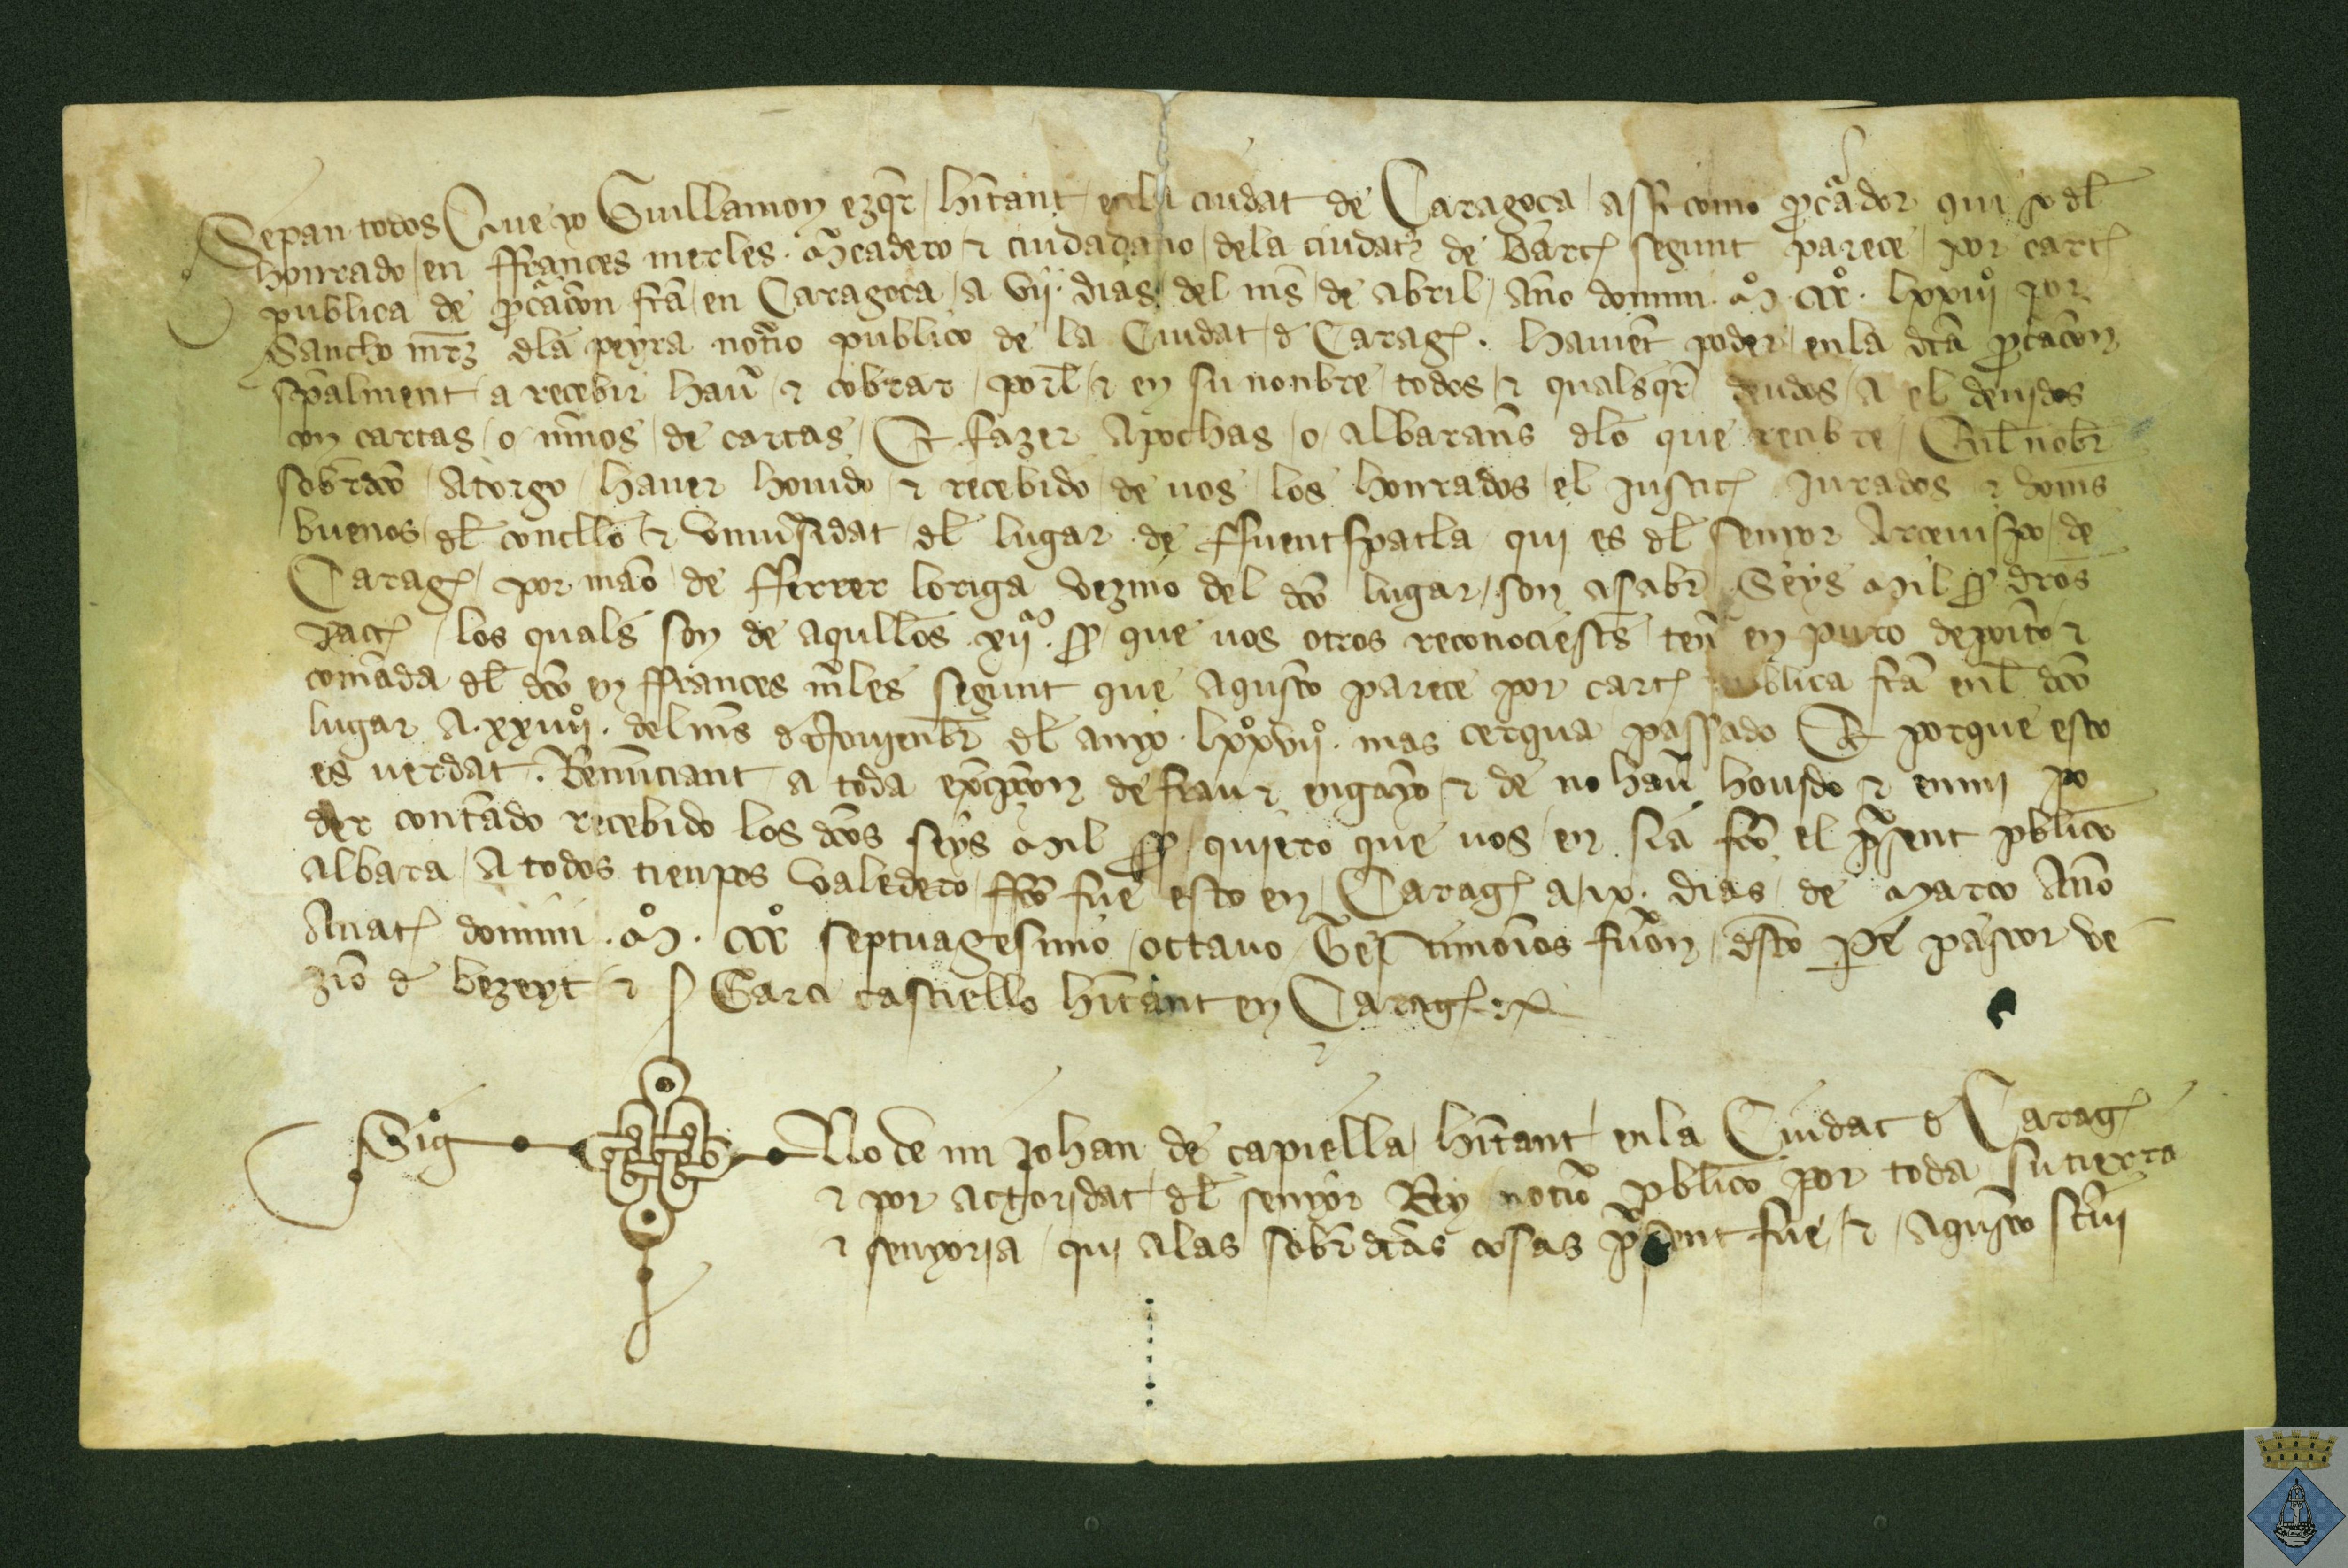 Sepan todos Que yo Guillamon ezqr hitant enla ciudat de Caragoça assi como procador qui so dl
honrado en ffrances merles mcadero et ciudadano dela ciudat de barc segunt parece por cart
publica de procacion fta en Caragoça a vii dias del mes de abril Ano domini M CCC lxxiiii por
Sancho mrz dla peyra notario publico de la Ciudat d Carag. havient poder enla dta procacion
spalment a recebir hauer et cobrar porl et en su nonbre todos et qualsqr deudos a el deuidos
con cartas o menos de cartas Et fazer Apochas o albarans dlo que recibre Enl nobre
sobrdito Atorgo hauer houido et recebido de uos los honrados el Justic Jurados et homes
buenos dl concello et uniuersidat dl lugar de ffuentspatla qui es dl senyor Arceuispo de
Carag por mano de fferrer loriga vezino del dito lugar son asaber Seys Mil ss dros
Jacc los quals son de aqullos xii ss que uos otros reconociests tener en puro deposito et
comanda dl dito en ffrances merles segunt que aqsto parece por cart publica fta enl dito
lugar A xxiiii del mes d Nouienbr dl anyo lxxvii mas cerqua passado Et porque esto
es uerdat Renunciant a toda excepcion de frau et enganyo et de no hauer houido et en mi po
der contado recebido los ditos seys Mil ss quiero que uos en sia fto el present publico
albara A todos tienpos valedero ffto fue esto en Carag a ix dias de Março Ano
Anat domini M CCC septuagesimo octauo Testimonios fueron dsto Pe pastor ve
zino d bezeyt et Garci castiello hitant en Carag
Sig No de mi Johan de capiella hitant enla Ciudat d Carag
et por actoridat dl senyor Rey notario publico por toda su tierra
et senyoria qui alas sobrditas cosas present fue et aqsto scriui